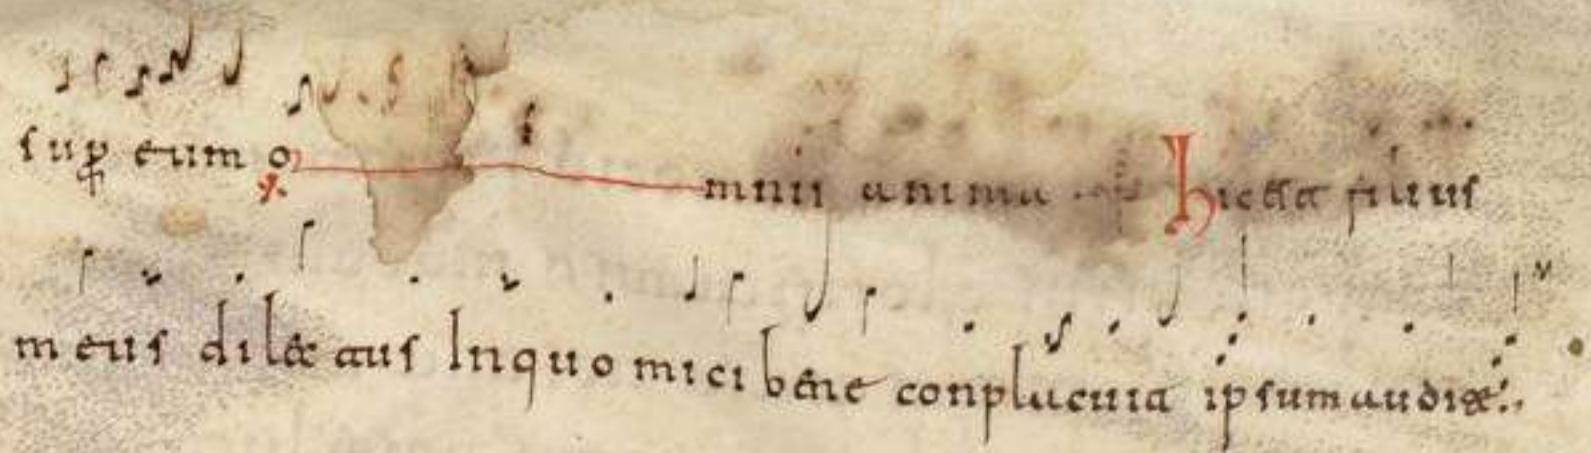 sup eum omnii anima hic est filius
meus dilectus Inquo mici bene conplacuit ipsum audite